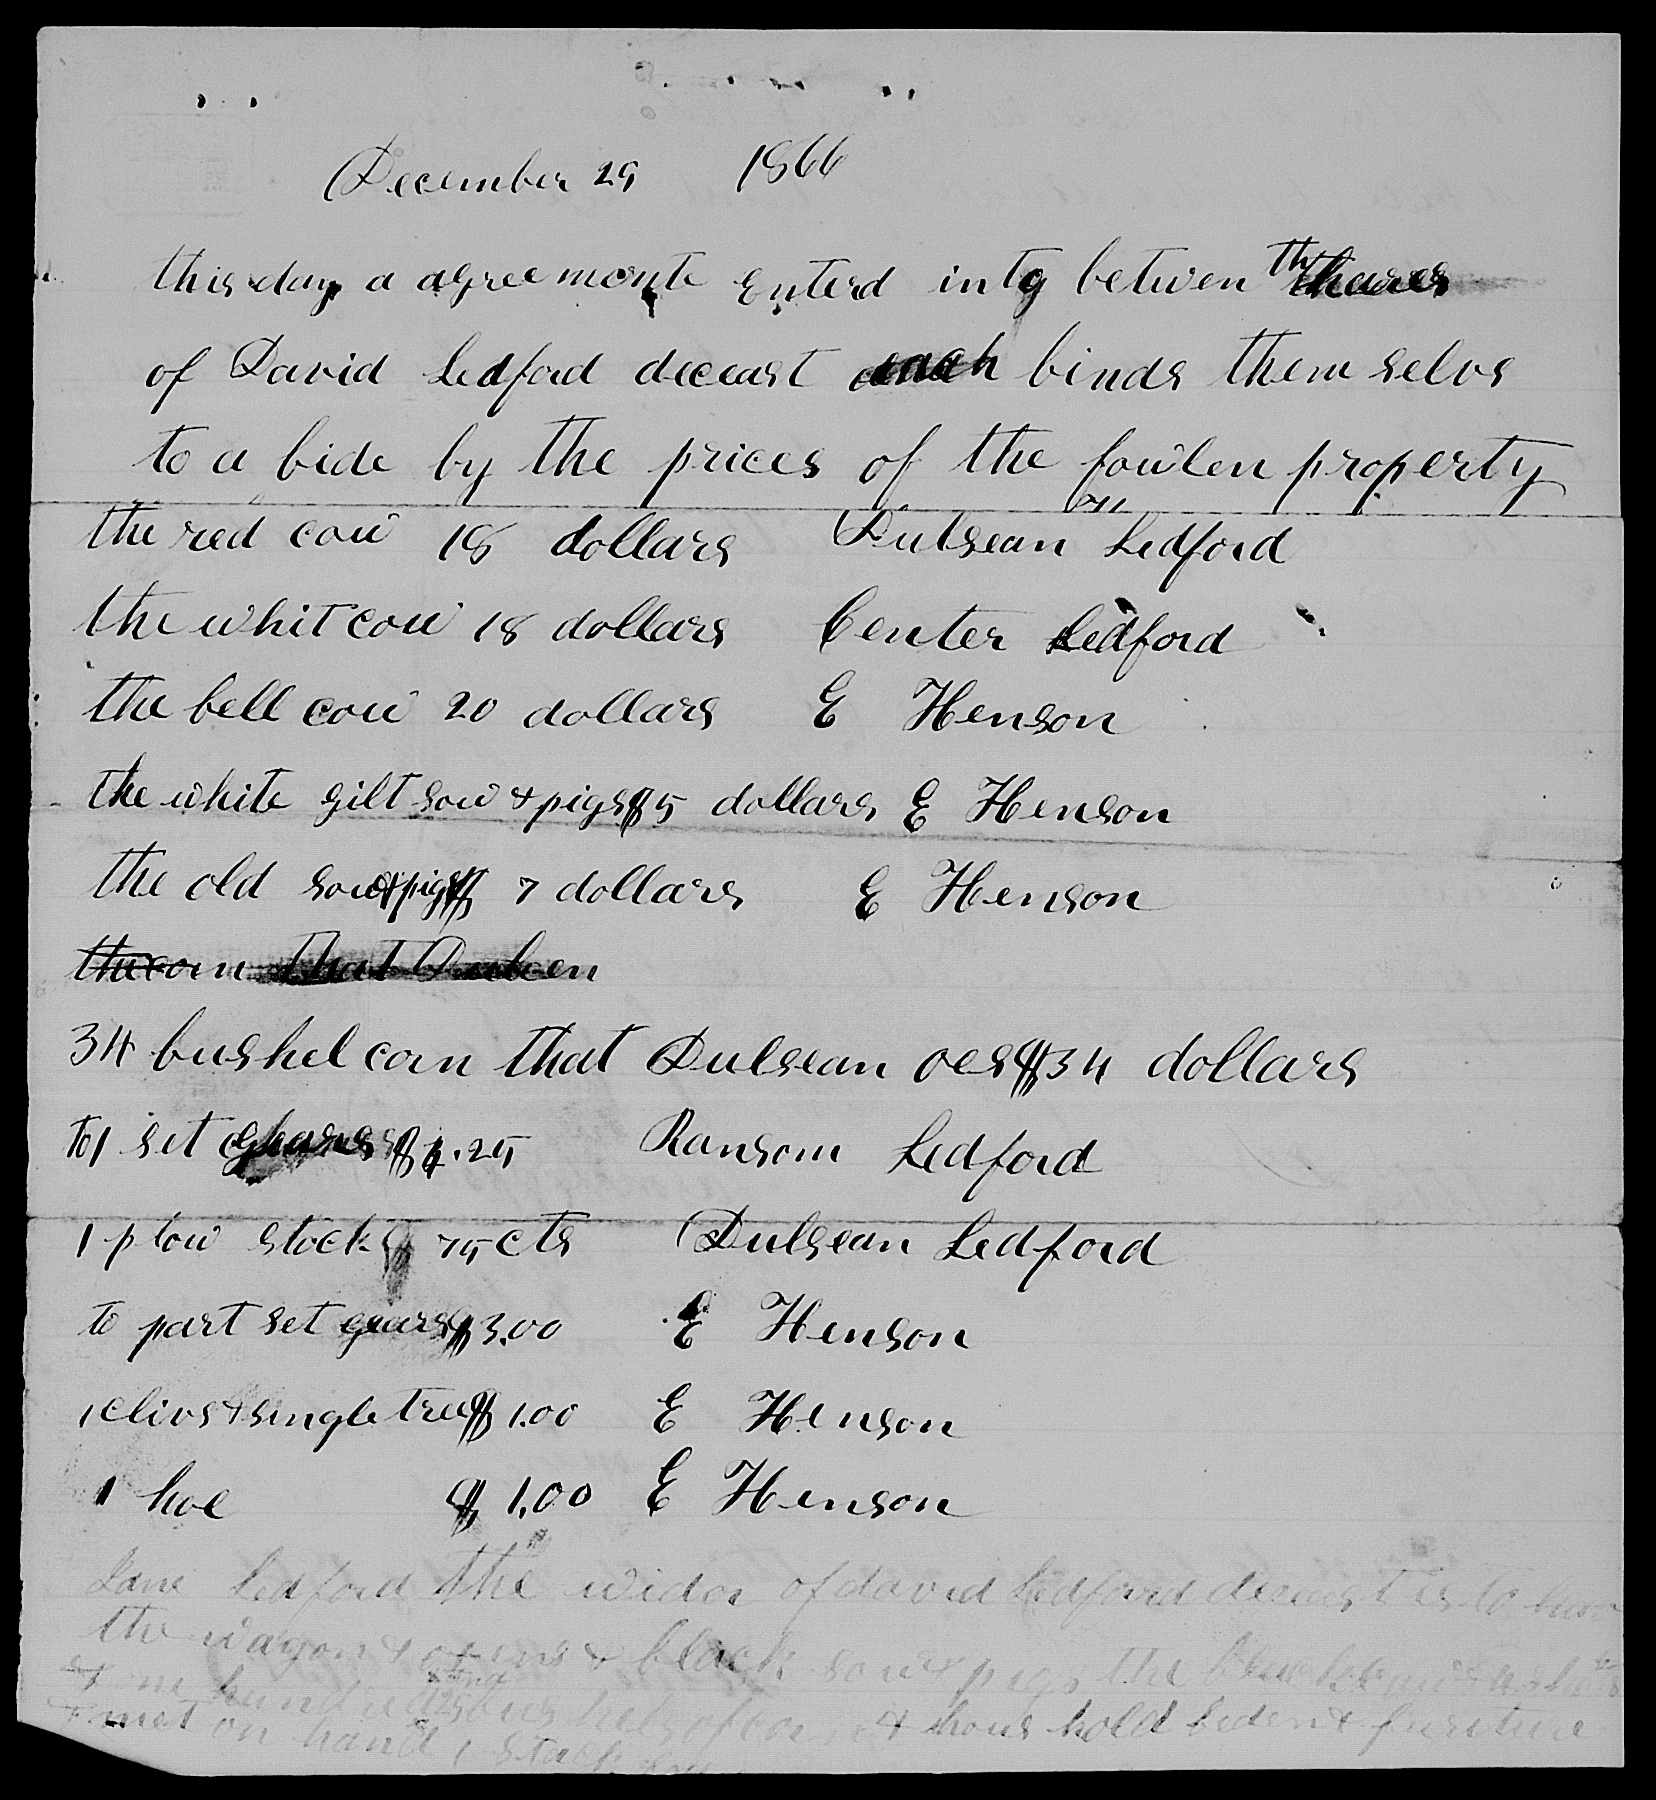 December 29 1866
this day a agreemente Enterd into betwen th
of David Ledford deceast each binds them selvs
to a bide by the prices of the fowlen property
the red cow 18 dollars Dulsean Ledford
the whit cow 18 dollars Center Ledford
the bell cow 20 dollars E Henson
the white gilt sow & pigs $5 dollars E Henson
the old sow & pigs $ 7 dollars E Henson
the corn that
34 bushel corn that Dulsean oes $34 dollars
to 1 set $ .25 Ransom Ledford
1 plow stock $ 75 cts Dulsean Ledford
to part set gears $3.00 E Henson
1 clivs & singletree $ 1.00 E Henson
1 hoe $ 1.00 E Henson
Jane Ledford the wider of david Ledford deceast is to have
the wagon & oxens & black sow & pigs the
& one hundred bushels of corn & hous hold beden & furniture
& met on hand 1 stack